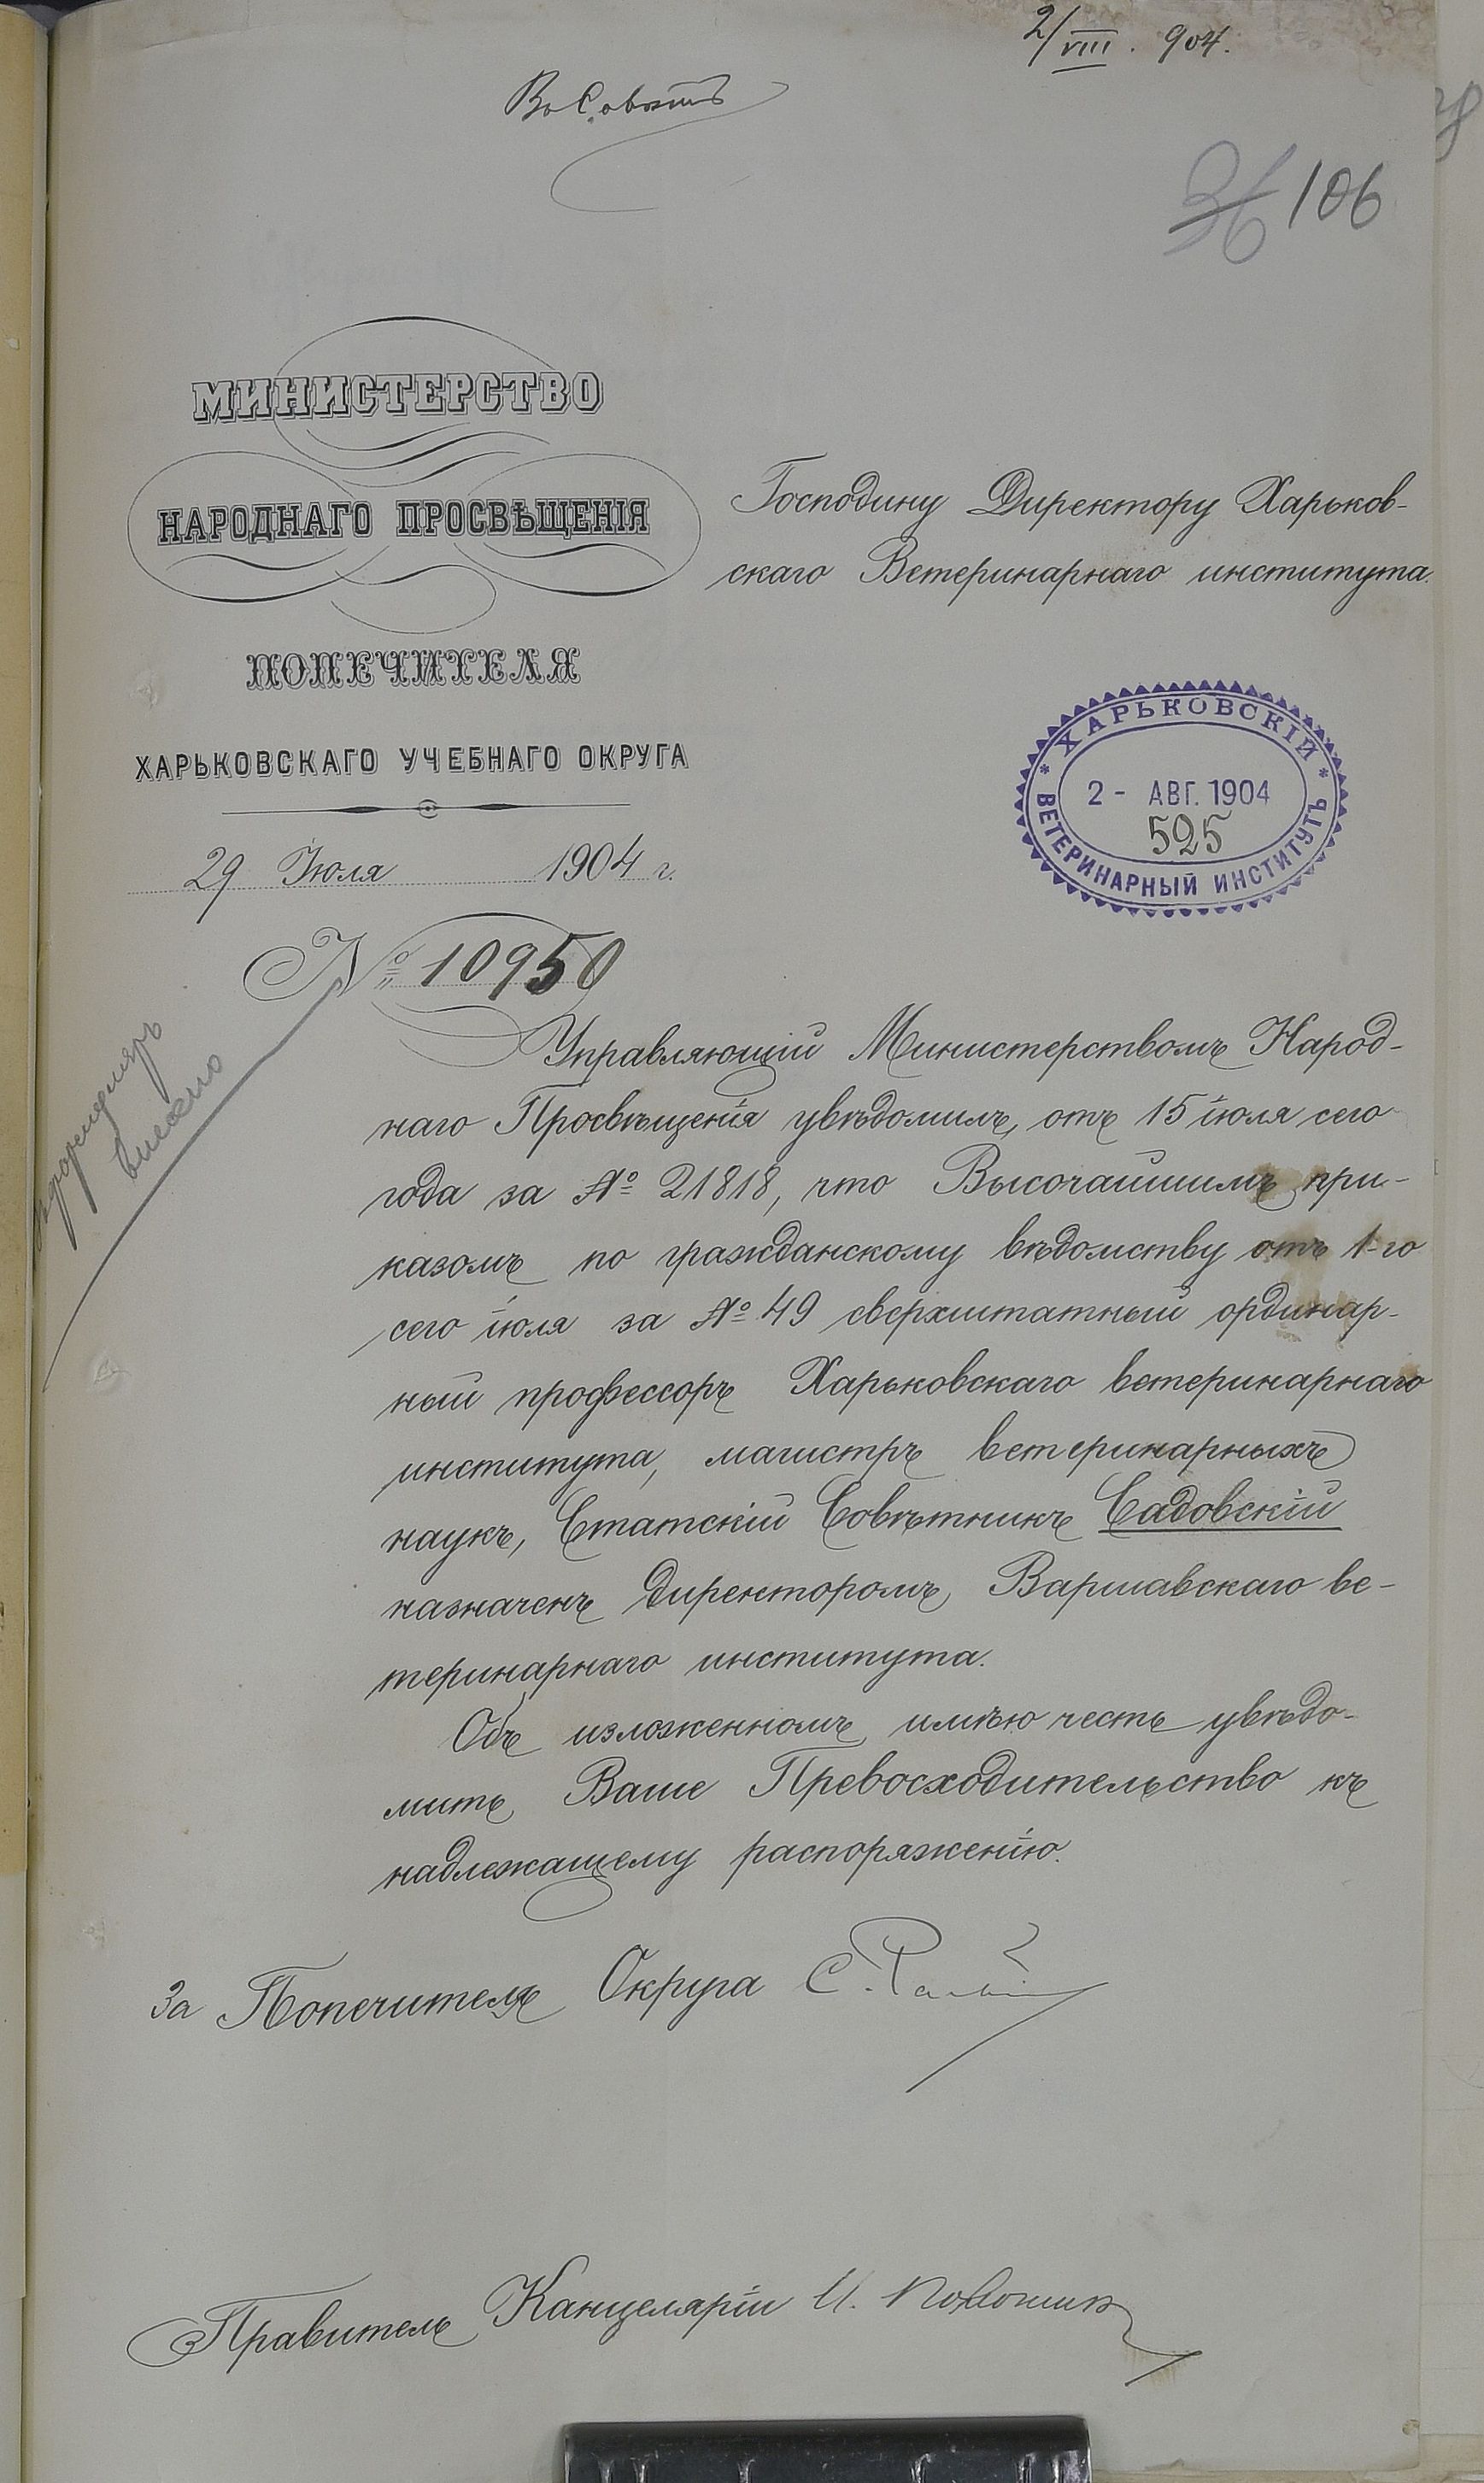 2/VIII. 904.
Въ Совѣтъ
36 106
МИНИСТЕРСТВО
НАРОДНАГО ПРОСВѢЩЕНІЯ
ПОПЕЧИТЕЛЯ
ХАРЬКОВСКАГО УЧЕБНАГО ОКРУГА
29 Іюля 1904 г.
№ 10950
Господину Директору Харьков-
скаго Ветеринарнаго института.
* ХАРЬКОВСКІЙ *
2 - АВГ. 1904
525
ВЕТЕРИНАРНЫЙ ИНСТИТУТЪ
внесено
Управляющій Министерствомъ Народ-
наго Просвѣщенія увѣдомилъ, отъ 15 іюля сего
года за № 21818, что Высочайшимъ при-
казомъ по гражданскому вѣдомству отъ 1-го
сего іюля за № 49 сверхштатный ординар-
ный профессоръ Харьковскаго ветеринарнаго
института, магистръ ветеринарныхъ
наукъ, Статскій Совѣтникъ Садовскій
назначенъ директоромъ Варшавскаго ве-
теринарнаго института.
Объ изложенномъ имѣю честь увѣдо-
мить Ваше Превосходительство къ
надлежащему распоряженію.
За Попечителя Округа С.
Правитель Канцеляріи И.